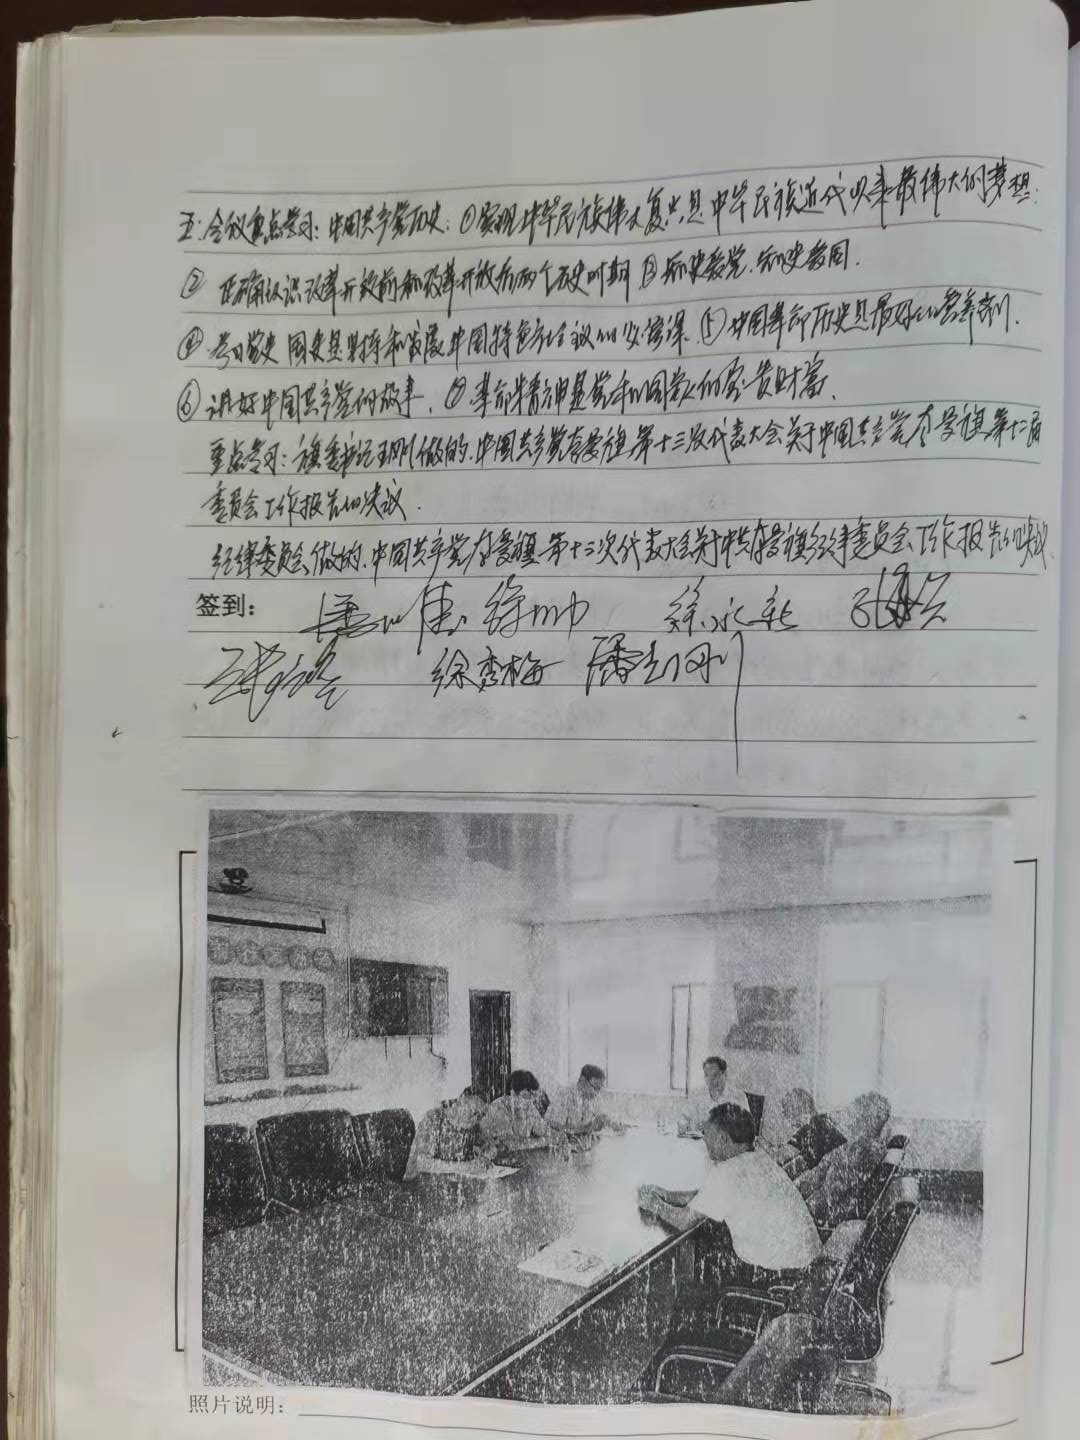 五、会议重点学习：中国共产党历史：①实现中华民族伟大复兴是中华民族近代以来最伟大的梦想：
② 正确认识改革开放前和改革开放后两个历史时期 ③ 知史爱党、知史爱国.
④. 学习党史 国史是坚持和发展中国特色社会主义的必修课. ⑤ 中国革命历史是最好的营养剂.
⑥ 讲好中国共产党的故事. ⑦. 革命精神是党和国家的宝贵财富.
重点学习：旗委书记王刚做的.中国共产党奈曼旗第十三次代表大会关于中国共产党奈曼旗第十二届
委员会工作报告的决议.
纪律委员会做的.中国共产党奈曼旗第十三次代表大会关于中共奈曼旗纪律委员会工作报告的决议.
签到：
徐永新
徐秀梅 潘志刚
照片说明：